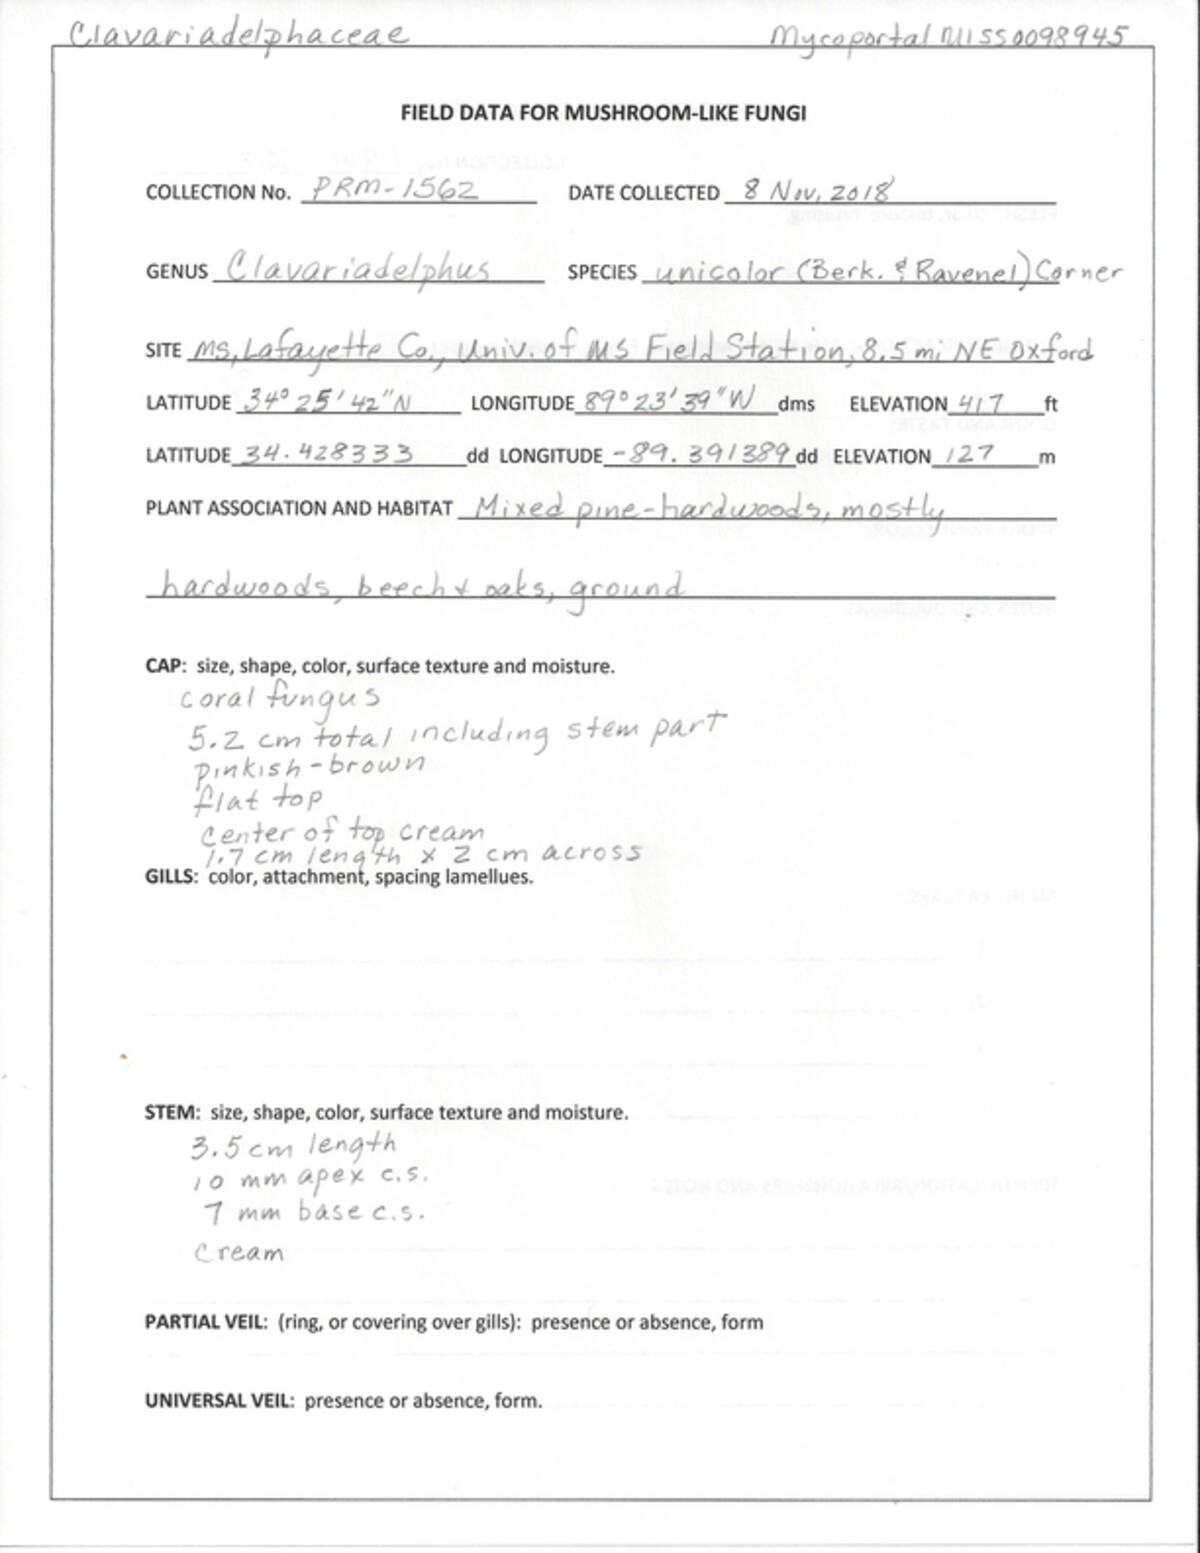 Clavariadelphaceae Mycoportal MISS0098945
FIELD DATA FOR MUSHROOM-LIKE FUNGI
COLLECTION No. PRM-1562 DATE COLLECTED 8 Nov, 2018
GENUS Clavariadelphus SPECIES unicolor (Berk. & Ravenel) Corner
SITE MS, Lafayette Co., Univ. of MS Field Station, 8.5 mi NE Oxford
LATITUDE 34° 25' 42" N LONGITUDE 89° 23' 39" W dms ELEVATION 417 ft
LATITUDE 34.428333 dd LONGITUDE -89.391389 dd ELEVATION 127 m
PLANT ASSOCIATION AND HABITAT Mixed pine-hardwoods, mostly
hardwoods, beech + oaks, ground
CAP: size, shape, color, surface texture and moisture.
coral fungus
5.2 cm total including stem part
pinkish-brown
flat top
center of top cream
1.7 cm length x 2 cm across
GILLS: color, attachment, spacing lamellues.
STEM: size, shape, color, surface texture and moisture.
3.5 cm length
10 mm apex c.s.
7 mm base c.s.
cream
PARTIAL VEIL: (ring, or covering over gills): presence or absence, form
UNIVERSAL VEIL: presence or absence, form.